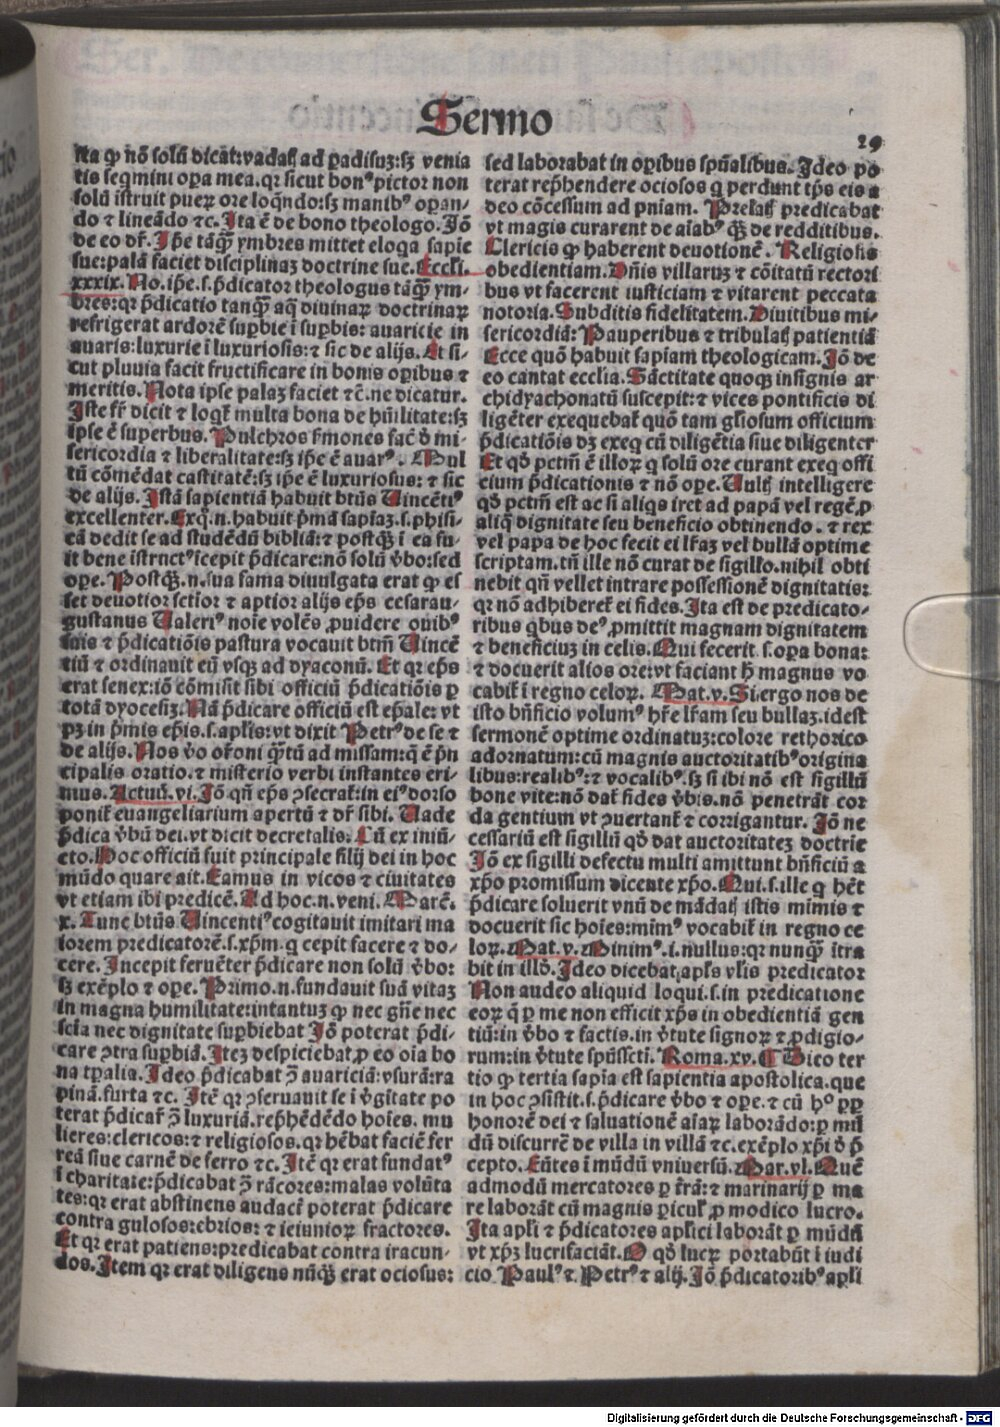 Sermo
29
ita ꝙ nō solū dicāt: vadatꝭ ad ꝑadisuꝫ: sꝫ venia
tis seqmini oꝑa mea. qꝛ sicut bonꝰ pictor non
solū istruit pueꝝ ore loqndo: sꝫ manibꝰ oꝑan-
do ⁊ lineādo ⁊c. Ita ē de bono theologo. Iō
de eo dꝛ. Ip̄e tāq̄ꝫ ymbres mittet eloqa sapie
sue: palā faciet disciplinaꝫ doctrine sue. Eccli.
xxxix. No. ip̄e. s. p̄dicator theologus tāq̄ꝫ ym-
bres: qꝛ p̄dicatio tanq̄ꝫ aq̄ diuinaꝝ doctrinaꝝ
refrigerat ardorē suꝑbie ī suꝑbis: auaricie in
auaris: luxurie ī luxuriosis: ⁊ sic de alijs. Et si-
cut pluuia facit fructificare in bonis oꝑibus ⁊
meritis. Nota ipse palaꝫ faciet ⁊c̄. ne dicatur.
Iste fr̄ dicit ⁊ loqt̄ multa bona de hūilitate: sꝫ
ipse ē superbus. Pulchros ẜmones fac̄ ð mi-
sericordia ⁊ liberalitate: sꝫ ip̄e ē auarꝰ. Mul
tū cōmēdat castitatē: sꝫ ip̄e ē luxuriosus: ⁊ sic
de alijs. Istā sapientiā habuit btūs Vincētiꝰ
excellenter. Exq̄. n. habuit p̄mā sapīaꝫ. s. phisi-
cā dedit se ad studēdū bibliā: ⁊ postq̄ꝫ ī ea fu-
it bene īstructꝰ īcepit p̄dicare: nō solū v̄bo: sed
oꝑe. Postq̄ꝫ. n. sua fama diuulgata erat ꝙ es
set deuotior sctīor ⁊ aptior alijs ep̄s cesarau-
gustanus Valeriꝰ noīe volēs ꝓuidere ouibꝰ
suis ⁊ p̄dicatiōis pastura vocauit btm̄ Vincē
tiū ⁊ ordinauit eū vsqꝫ ad dyaconū. Et qꝛ ep̄s
erat senex: iō cōmisit sibi officiū p̄dicatiōis ꝑ
totā dyocesiꝫ. Nā p̄dicare officiū est ep̄ale: vt
pꝫ in p̄mis ep̄is. s. apl̄is: vt dixit Petrꝰ de se ⁊
de alijs. Nos v̄o or̄oni q̄ntū ad missam: q̄ ē p̄n
cipalis oratio. ⁊ misterio verbi instantes eri-
mus. Actuū. vi. Iō qn̄ ep̄s ↄsecrat̄: in eiꝰ dorso
ponit̄ euangeliarium apertū ⁊ dꝛ sibi. Vade
p̄dica v̄bū dei. vt dicit decretalis. Cū ex iniū-
cto. Hoc officiū fuit principale filij dei in hoc
mūdo quare ait. Eamus in vicos ⁊ ciuitates
vt etiam ibi predicē. Ad hoc. n. veni. Matē.
x. Tunc btūs Vincentiꝰ cogitauit imitari ma
iorem predicatorē. s. xp̄m. q cepit facere ⁊ do-
cere. Incepit feruēter p̄dicare non solū v̄bo:
sꝫ exēplo ⁊ oꝑe. Primo. n. fundauit suā vitaꝫ
in magna humilitate: intantuꝫ ꝙ nec gn̄e nec
scīa nec dignitate suꝑbiebat Iō poterat p̄di-
care ↄtra suꝑbiā. Iteꝫ despiciebat ꝓ eo oīa bo
na tp̄alia. Ideo p̄dicabat ↄ̄ auariciā: vsurā: ra
pinā. furta ⁊c. Itē qꝛ ↄseruauit se ī v̄gītate po
terat p̄dicar̄ ↄ̄ luxuriā. rep̄hēdēdo hoīes. mu
lieres: clericos: ⁊ religiosos. qꝛ hēbat faciē fer
reā siue carnē de ferro ⁊c. Itē qꝛ erat fundatꝰ
ī charitate: p̄dicabat ↄ̄ rācores: malas volūta
tes: qꝛ erat abstinens audact̄ poterat p̄dicare
contra gulosos: ebrios: ⁊ ieiunioꝝ fractores.
Et qꝛ erat patiens: predicabat contra iracun-
dos. Item qꝛ erat diligens nūq̄ꝫ erat ociosus:
sed laborabat in oꝑibus spūalibus. Ideo po
terat rep̄hendere ociosos q ꝑdunt tp̄s eis a
deo cōcessum ad pn̄iam. Prelatꝭ predicabat
vt magis curarent de aīabꝰ q̄ꝫ de redditibus.
Clericis ꝙ haberent deuotionē. Religiosis
obedientiam. Dn̄is villaruꝫ ⁊ cōitatū rectori
bus vt facerent iusticiam ⁊ vitarent peccata
notoria. Subditis fidelitatem. Diuitibus mi-
sericordiā: Pauperibus ⁊ tribulatꝭ patientiā
Ecce quō habuit sapīam theologicam. Iō de
eo cantat ecclīa. Sāctitate quoqꝫ insignis ar
chidyachonatū suscepit: ⁊ vices pontificis di
ligēter exequebat̄ quō tam gl̄iosum officium
p̄dicatiōis dꝫ exeq cū diligētia siue diligenter
Et qð pctm̄ ē illoꝝ q solū ore curant exeq offi
cium p̄dicationis ⁊ nō oꝑe. Vultꝭ intelligere
qð pctm̄ est ac si aliqs iret ad papā vel regē ꝓ
aliq̄ dignitate seu beneficio obtinendo. ⁊ rex
vel papa de hoc fecit ei lr̄aꝫ vel bullā optime
scriptam. tn̄ ille nō curat de sigillo. nihil obti
nebit qn̄ vellet intrare possessionē dignitatis:
qꝛ nō adhiberet̄ ei fides. Ita est de predicato-
ribus qbus deꝰ ꝓmittit magnam dignitatem
⁊ beneficiuꝫ in celis. Qui fecerit. s. oꝑa bona:
⁊ docuerit alios ore: vt faciant h̄ magnus vo
cabit̄ ī regno celoꝝ. Mat. v. Si ergo nos de
isto bn̄ficio volumꝰ hr̄e lr̄am seu bullaꝫ. idest
sermonē optime ordinatuꝫ: colore rethorico
adornatum: cū magnis auctoritatibꝰ origina
libus: realibꝰ: ⁊ vocalibꝰ. sꝫ si ibi nō est sigillū
bone vite: nō dat̄ fides v̄bis. nō penetrāt cor
da gentium vt ↄuertant̄ ⁊ corrigantur. Iō ne
cessariū est sigillū qð dat auctoritateꝫ doctrīe
Iō ex sigilli defectu multi amittunt bn̄ficiū a
xp̄o promissum dicente xp̄o. Qui. s. ille q hēt
p̄dicare soluerit vnū de mādatꝭ istis mīmis ⁊
docuerit sic hoīes: mīmꝰ vocabit̄ in regno ce
loꝝ. Mat. v. Minimꝰ. i. nullus: qꝛ nunq̄ꝫ ītra
bit in illð. Ideo dicebat apl̄s vl̄is predicator
Non audeo aliquid loqui. s. in predicatione
eoꝝ q̄ ꝑ me non efficit xp̄s in obedientiā gen
tiū: in v̄bo ⁊ factis. in v̄tute signoꝝ ⁊ ꝓdigio-
rum: in v̄tute spūsscti. Roma. xv. ¶ Dico ter
tio ꝙ tertia sapīa est sapientia apostolica. que
in hoc ↄsistit. s. p̄dicare v̄bo ⁊ oꝑe. ⁊ cū hͦ ꝓp̄
honorē dei ⁊ saluationē aīaꝝ laborādo: ꝑ mū
dū discurrē de villa in villā ⁊c. exēplo xp̄i ð p̄
cepto. Eūtes ī mūdū vniuersū. Mar. vl. Quē
admodū mercatores ꝑ t̄rā: ⁊ marinarij ꝑ ma
re laborāt cū magnis ꝑicul̄ ꝓ modico lucro.
Ita apl̄i ⁊ p̄dicatores apl̄ici laborāt ꝑ mūdū
vt xp̄ꝫ lucrifaciāt. O qð lucꝝ portabūt ī iudi
cio Paulꝰ ⁊ Petrꝰ ⁊ alij. Iō p̄dicatoribꝰ apl̄i
Digitalisierung gefördert durch die Deutsche Forschungsgemeinschaft - DFG